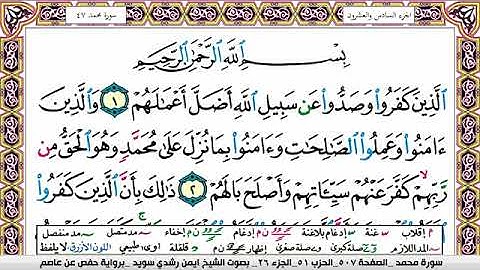 الجزء السادس والعشرون سورة محمد ٤٧
بِسْمِ اللَّهِ الرَّحْمَٰنِ الرَّحِيمِ
الَّذِينَ كَفَرُوا۟ وَصَدُّوا۟ عَن سَبِيلِ اللَّهِ أَضَلَّ أَعْمَٰلَهُمْ ١ وَالَّذِينَ
ءَامَنُوا۟ وَعَمِلُوا۟ الصَّٰلِحَٰتِ وَءَامَنُوا۟ بِمَا نُزِّلَ عَلَىٰ مُحَمَّدٍ وَهُوَ الْحَقُّ مِن
رَّبِّهِمْ كَفَّرَ عَنْهُمْ سَيِّـَٔاتِهِمْ وَأَصْلَحَ بَالَهُمْ ٢ ذَٰلِكَ بِأَنَّ الَّذِينَ كَفَرُوا۟
م إقلاب س غنة إدغام بلاغنة م ن إدغام إخفاء مد متصل مد منفصل
المد اللازم صلة كبرى صلة صغرى إظهار قلقلة مد طبيعي اللون الأزرق لايلفظ
سورة محمد _الصفحة ٥٠٧_الحزب ٥١_الجزء ٢٦_ بصوت الشيخ ايمن رشدي سويد _برواية حفص عن عاصم